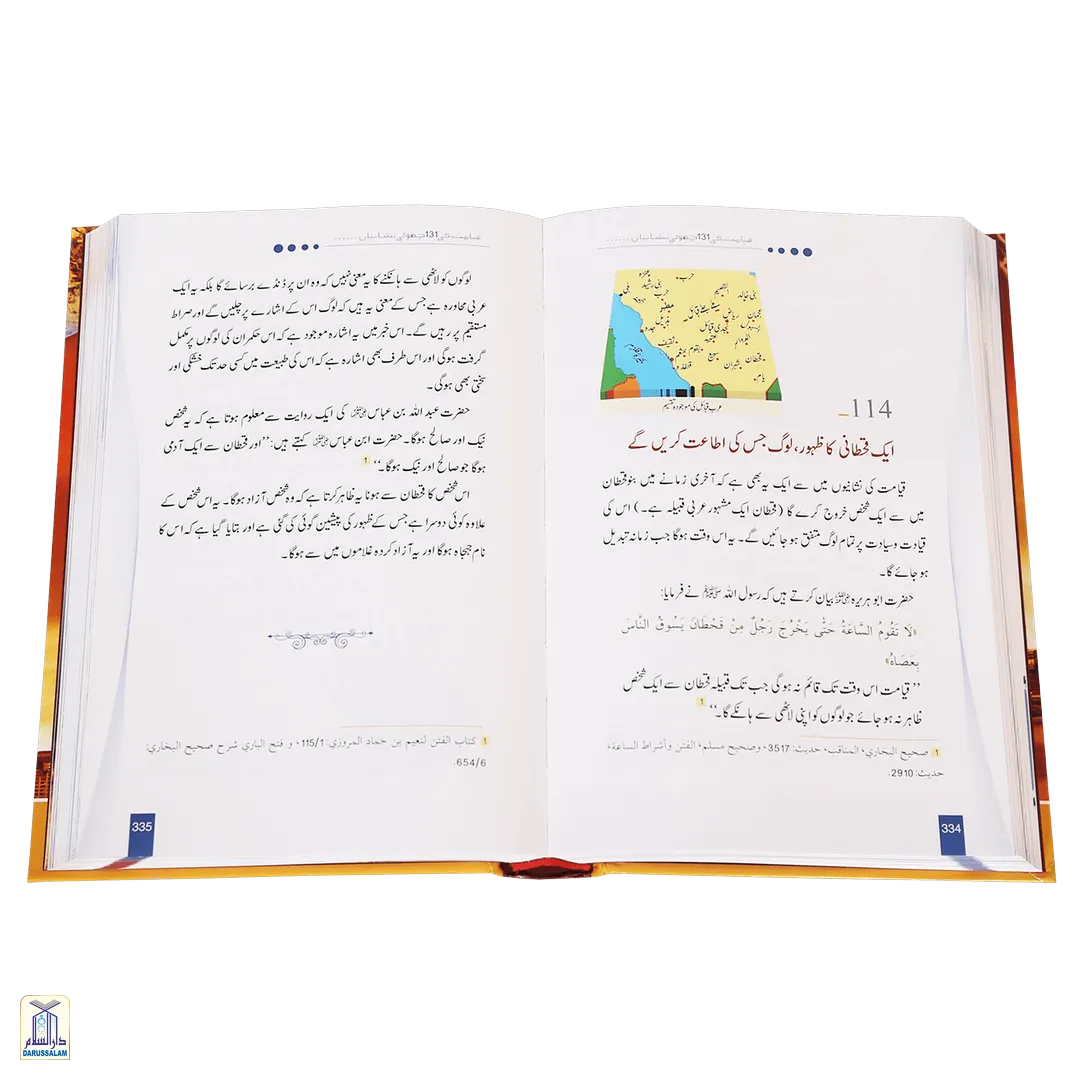 قیامت کی 131 چھوٹی نشانیاں ......
حرب و
عنزہ
بنی رشید
حرب
بلی
القصیم
بنی خالد
مطیر
عجمان
ریاض
نجدی قبائل
جدہ
ثقیف
سبیع
بقوم
قحطان
شہران
یام
عرب قبائل کی موجودہ تقسیم
114
ایک قحطانی کا ظہور، لوگ جس کی اطاعت کریں گے
قیامت کی نشانیوں میں سے ایک یہ بھی ہے کہ آخری زمانے میں بنو قحطان
میں سے ایک شخص خروج کرے گا (قحطان ایک مشہور عربی قبیلہ ہے۔) اس کی
قیادت و سیادت پر تمام لوگ متفق ہو جائیں گے۔ یہ اس وقت ہوگا جب زمانہ تبدیل
ہو جائے گا۔
حضرت ابو ہریرہ رضی اللہ عنہ بیان کرتے ہیں کہ رسول اللہ ﷺ نے فرمایا:
«لَا تَقُومُ السَّاعَةُ حَتَّى يَخْرُجَ رَجُلٌ مِنْ قَحْطَانَ يَسُوقُ النَّاسَ
بِعَصَاهُ»
’’قیامت اس وقت تک قائم نہ ہوگی جب تک قبیلہ قحطان سے ایک شخص
ظاہر نہ ہو جائے جو لوگوں کو اپنی لاٹھی سے ہانکے گا۔‘‘ 1
1 صحيح البخاري، المناقب، حديث: 3517، وصحيح مسلم، الفتن وأشراط الساعة،
حديث: 2910.
334
قیامت کی 131 چھوٹی نشانیاں ......
لوگوں کو لاٹھی سے ہانکنے کا یہ معنی نہیں کہ وہ ان پر ڈنڈے برسائے گا بلکہ یہ ایک
عربی محاورہ ہے جس کے معنی یہ ہیں کہ لوگ اس کے اشارے پر چلیں گے اور صراط
مستقیم پر رہیں گے۔ اس خبر میں یہ اشارہ موجود ہے کہ اس حکمران کی لوگوں پر مکمل
گرفت ہوگی اور اس طرف بھی اشارہ ہے کہ اس کی طبیعت میں کسی حد تک خشکی اور
سختی بھی ہوگی۔
حضرت عبد اللہ بن عباس رضی اللہ عنہما کی ایک روایت سے معلوم ہوتا ہے کہ یہ شخص
نیک اور صالح ہوگا۔ حضرت ابن عباس رضی اللہ عنہما کہتے ہیں: ’’اور قحطان سے ایک آدمی
ہوگا جو صالح اور نیک ہوگا۔‘‘ 1
اس شخص کا قحطان سے ہونا یہ ظاہر کرتا ہے کہ وہ شخص آزاد ہوگا۔ یہ اس شخص کے
علاوہ کوئی دوسرا ہے جس کے ظہور کی پیشین گوئی کی گئی ہے اور بتایا گیا ہے کہ اس کا
نام جہجاہ ہوگا اور یہ آزاد کردہ غلاموں میں سے ہوگا۔
1 كتاب الفتن لنعيم بن حماد المروزي: 115/1، و فتح الباري شرح صحيح البخاري:
654/6.
335
دارالسلام
DARUSSALAM